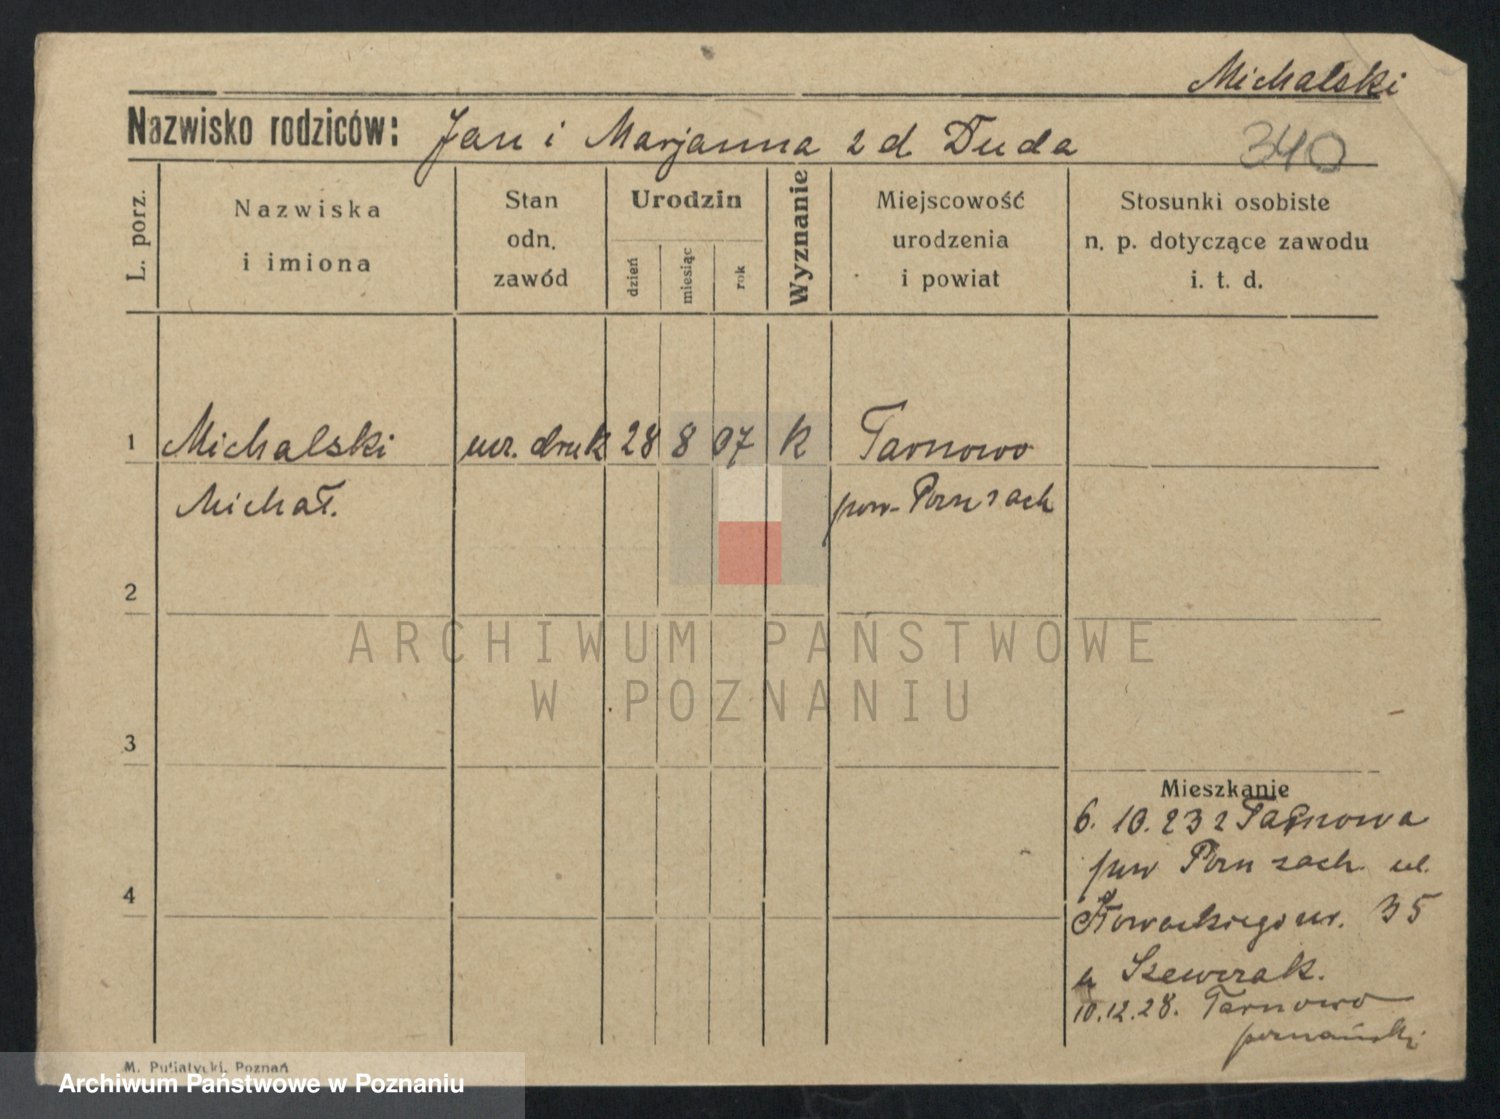 Michalski
Nazwisko rodziców: Jan i Marjanna z d. Duda
340
L. porz.
Nazwiska
i imiona
Stan
odn.
zawód
Urodzin
dzień
miesiąc
rok
Wyznanie
Miejscowość
urodzenia
i powiat
Stosunki osobiste
n. p. dotyczące zawodu
i. t. d.
1 Michalski druk 28 8 07 k Tarnowo
Michał. pow.
2
3
4
ARCHIWUM PAŃSTWOWE
W POZNANIU
Mieszkanie
6. 10. 23 z Tarnowa
pow ul.
Słowackiego nr. 35
u Szewczak.
10.12.28. Tarnowo
poznański
M. Putiatycki, Poznań
Archiwum Państwowe w Poznaniu